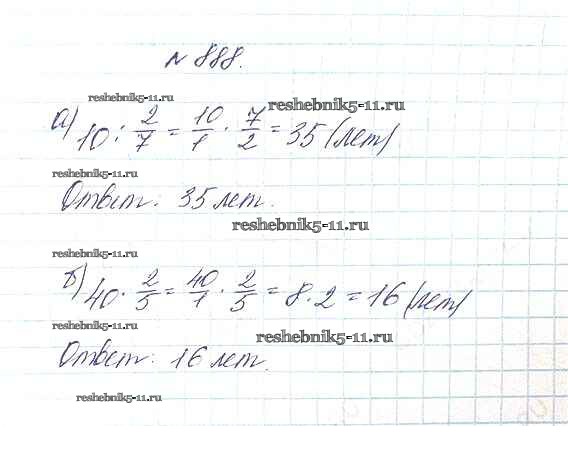 № 888.
reshebnik5-11.ru
reshebnik5-11.ru
а) 10 : 2/7 = 10/1 · 7/2 = 35 (лет)
reshebnik5-11.ru
Ответ: 35 лет.
reshebnik5-11.ru
reshebnik5-11.ru
б) 40 · 2/5 = 40/1 · 2/5 = 8 · 2 = 16 (лет)
reshebnik5-11.ru
reshebnik5-11.ru
Ответ: 16 лет.
reshebnik5-11.ru